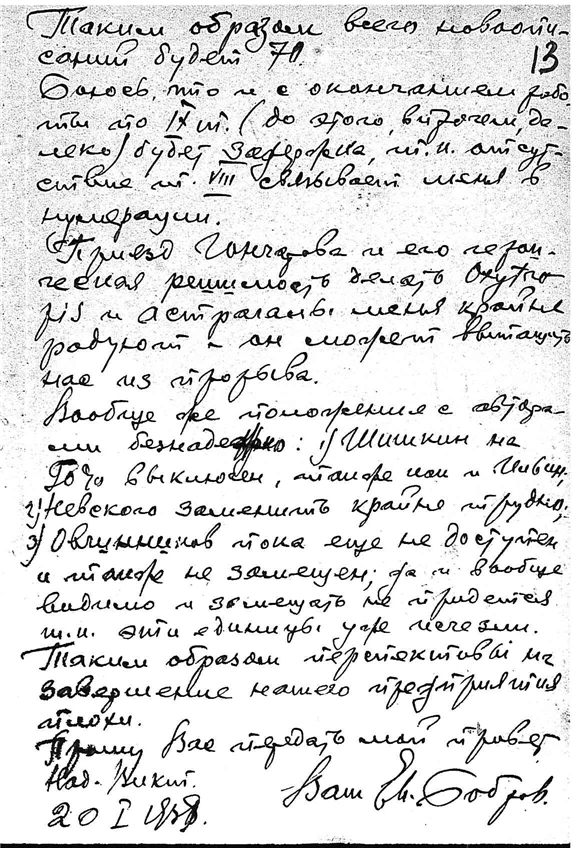 Таким образом всего новоопи-
саний будет 70.
13
Боюсь, что и с окончанием рабо-
ты по IX т. (до этого, впрочем, да-
леко) будет задержка, т.к. отсут-
ствие т. VIII связывает меня в
нумерации.
Приезд Гончарова и его герои-
ческая решимость делать Oxytro-
pis и Астрагалы меня крайне
радуют и он может вытащить
нас из прорыва.
Вообще же положение с автора-
ми безнадежно: 1) Шишкин на
выключен, также как и Ильин;
2) Невского заменить крайне трудно;
3) Овчинников пока еще не доступен
и также не замещен; да и вообще
видимо и замещать не придется
т.к. эти единицы уже исчезли.
Таким образом перспективы на
завершение нашего предприятия
плохи.
Прошу Вас передать мой привет
Над. Викт.
Ваш Ев. Бобров.
20 I